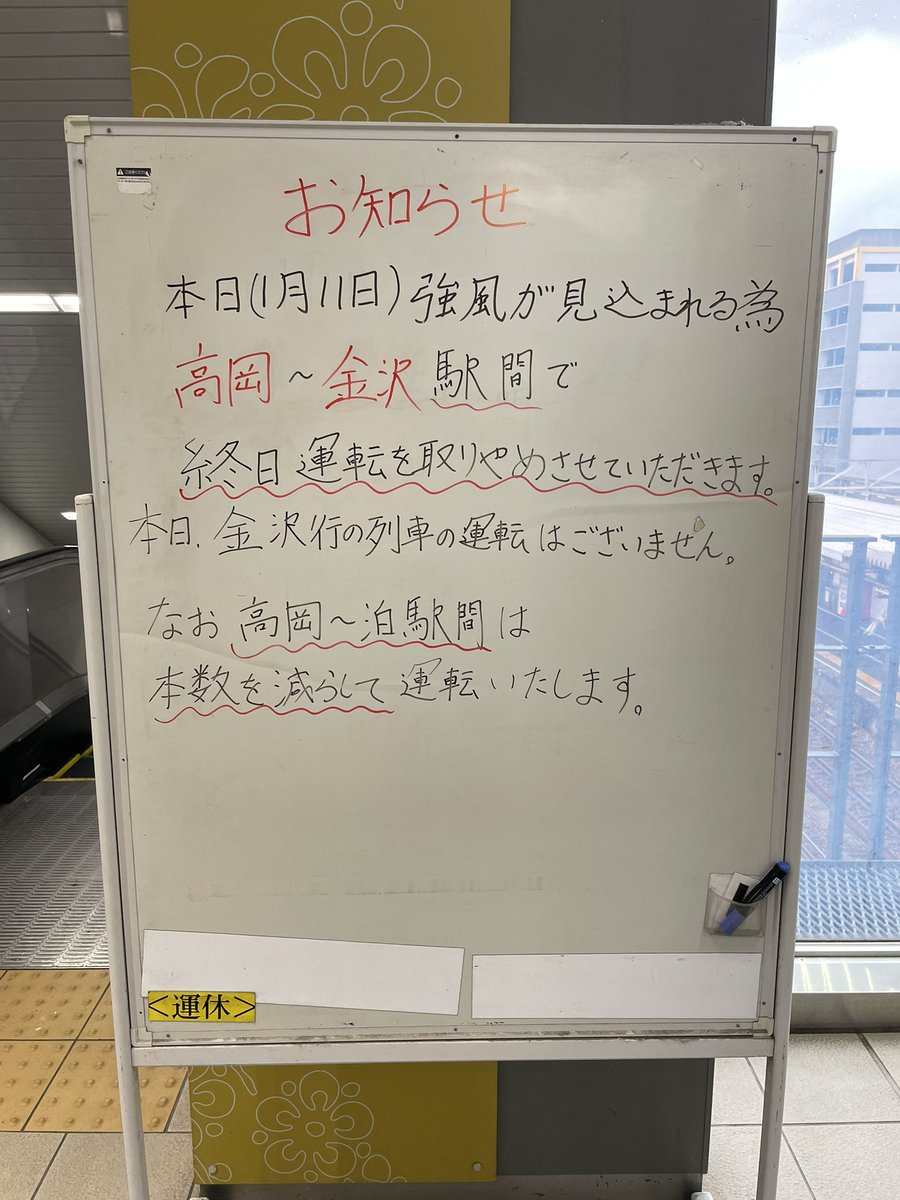 お知らせ
本日(1月11日)強風が見込まれる為
高岡～金沢駅間で
終日運転を取りやめさせていただきます。
本日、金沢行の列車の運転はございません。
なお高岡～泊駅間は
本数を減らして運転いたします。
<運休>